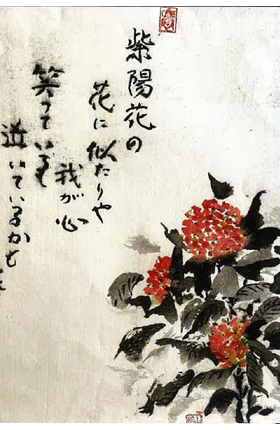 紫陽花の
花に似たりや
我が心
笑っているも
泣いているかも